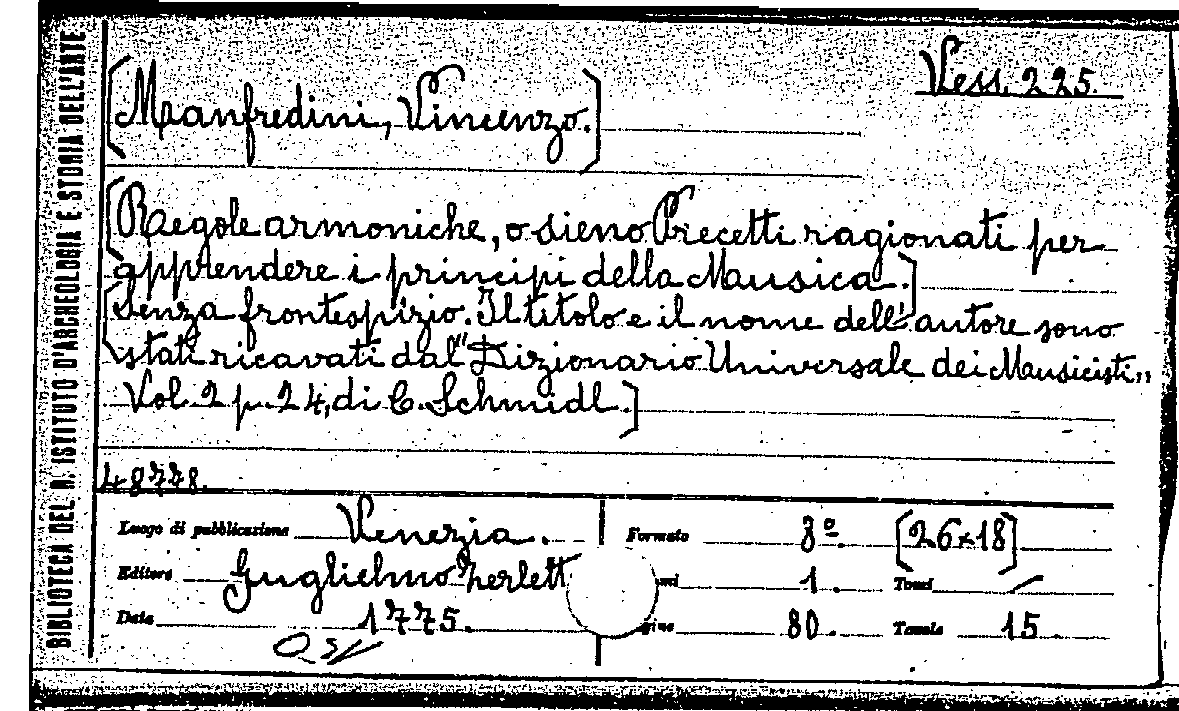 BIBLIOTECA DEL R. ISTITUTO D'ARCHEOLOGIA E STORIA DELL'ARTE
Vess. 225.
[Manfredini, Vincenzo.]
[Regole armoniche, o sieno Precetti ragionati per
apprendere i principi della Musica.]
[Senza frontespizio. Il titolo e il nome dell'autore sono
stati ricavati dal "Dizionario Universale dei Musicisti,,
Vol. 2 p. 24, di C. Schmidl.]
48778.
Luogo di pubblicazione Venezia. Formato 8º. [26×18]
Editore Guglielmo Zerlett 1. Tomi /
Data 1775. 80. Tavole 15.